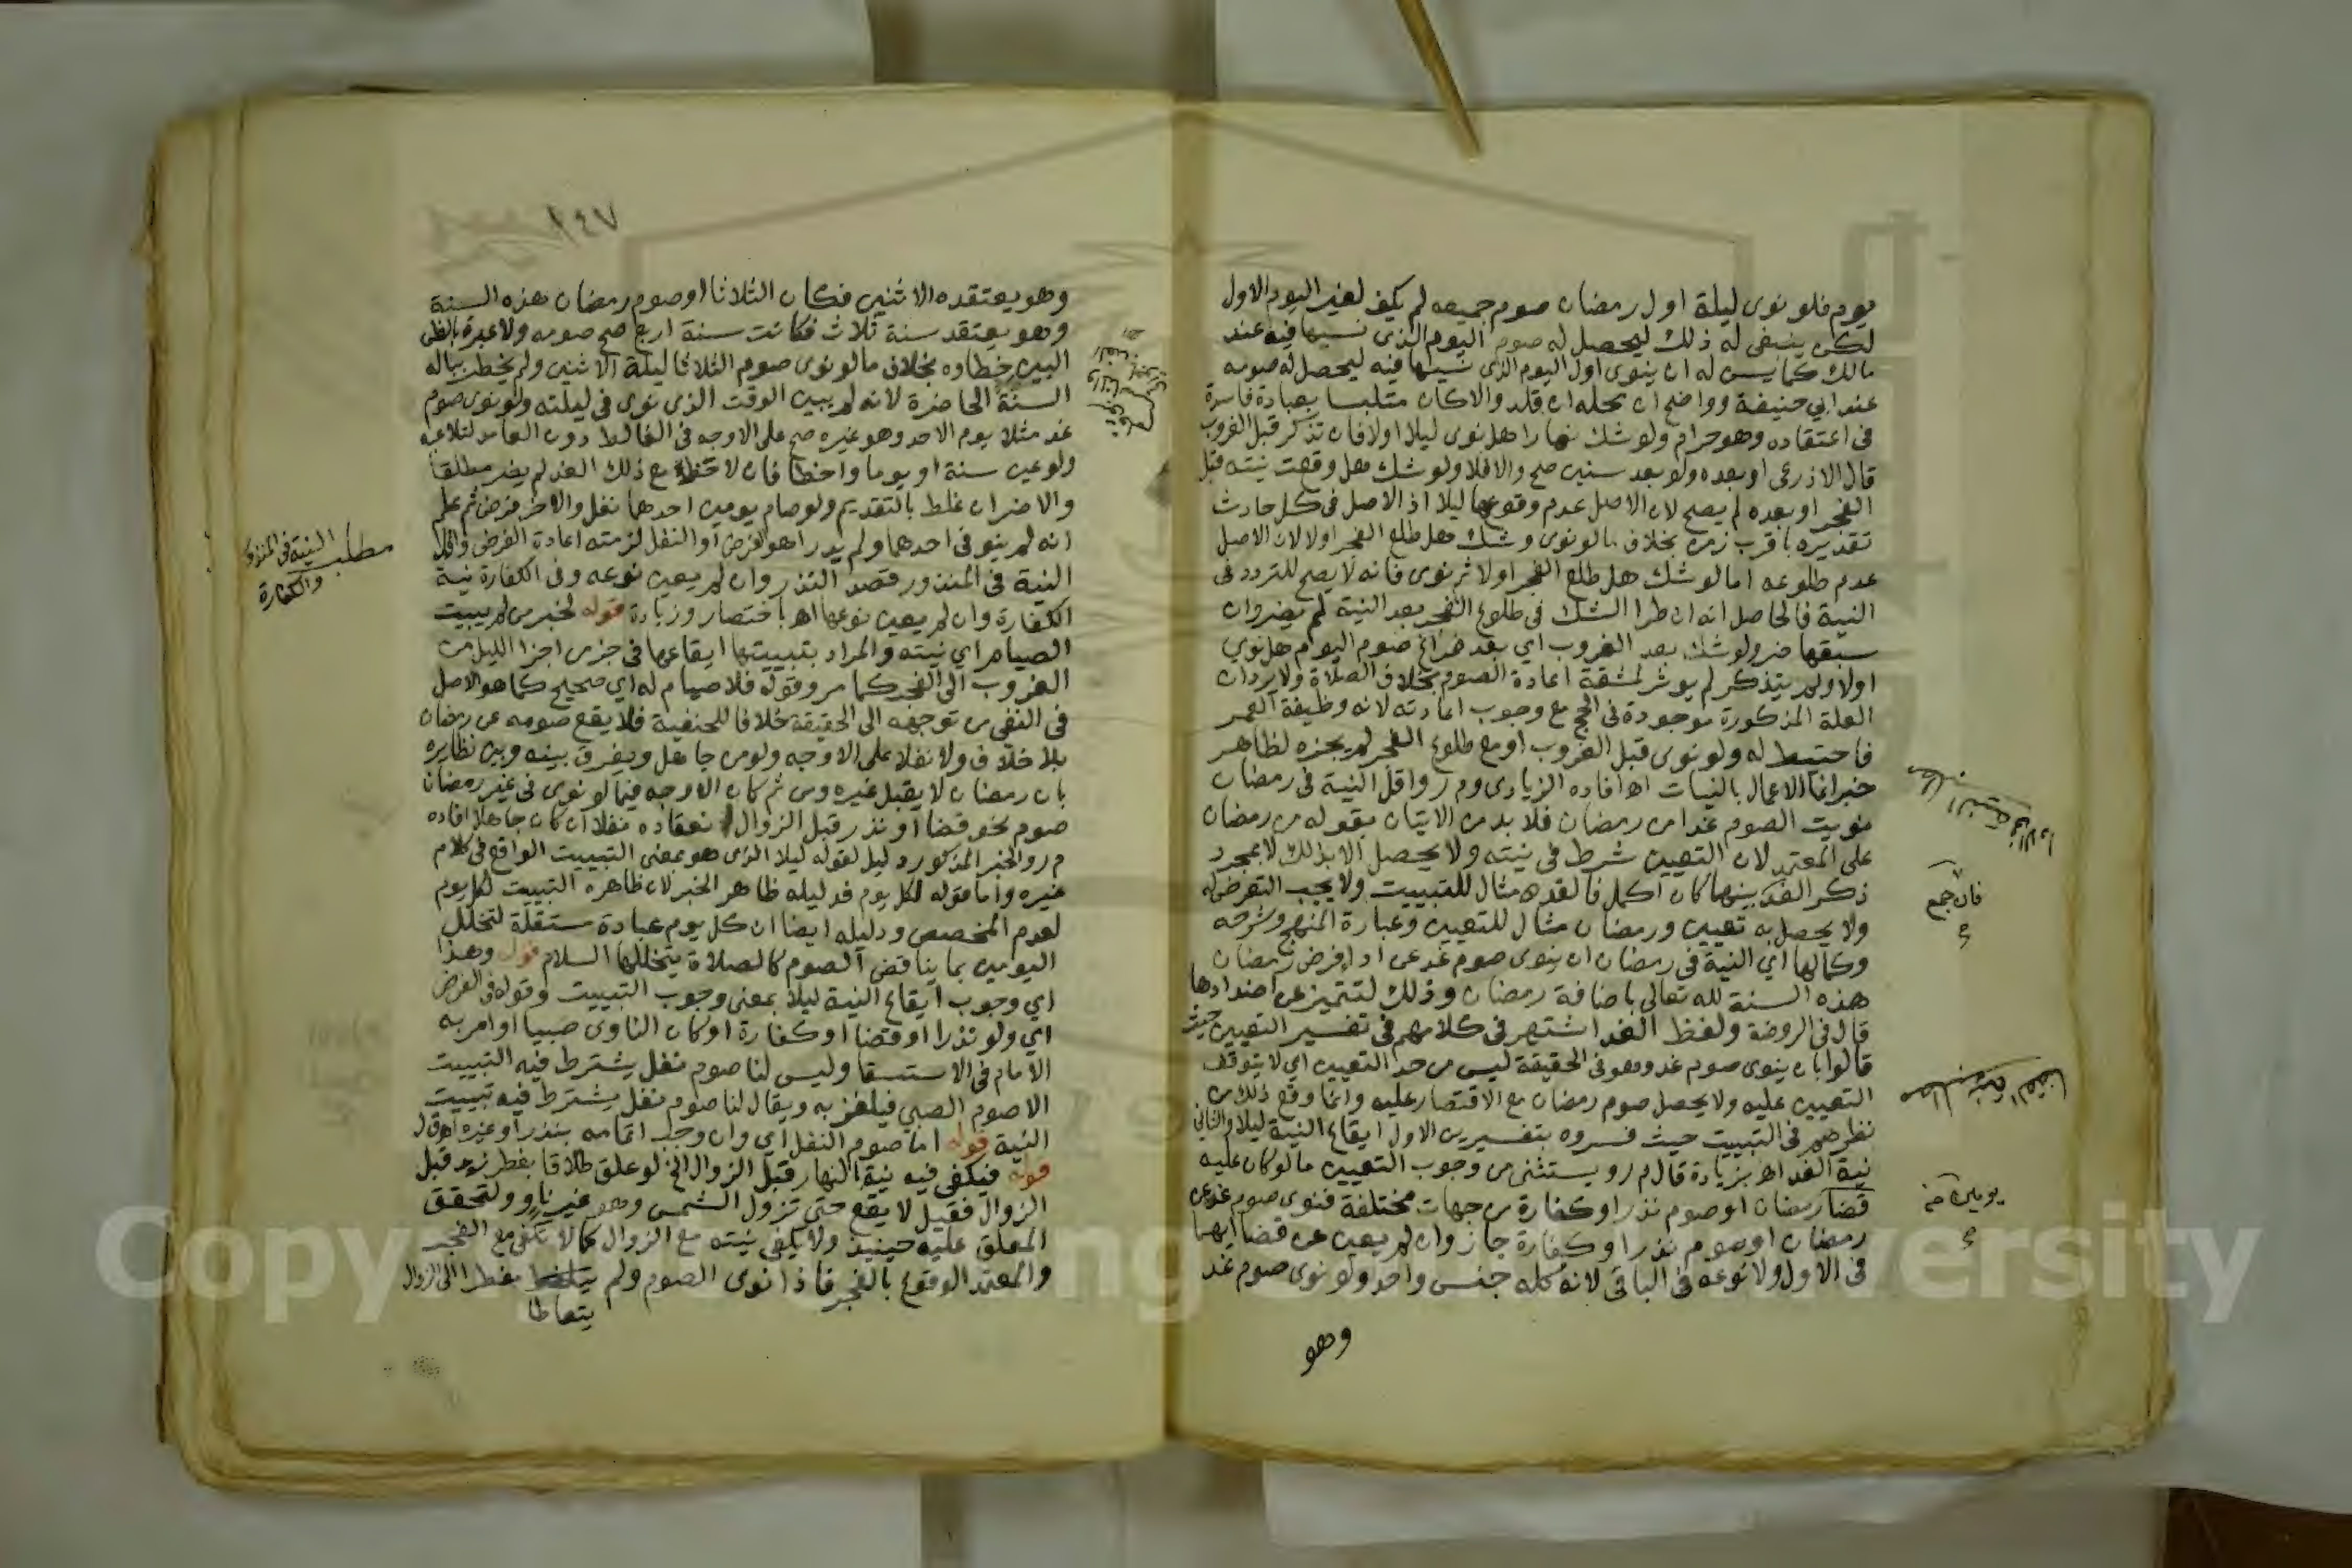 يوم فلو نوى ليلة اول رمضان صوم جميعه لم يكف لغير اليوم الاول
لكن ينبغي له ذلك ليحصل له صوم اليوم الذي نسيها فيه عند
مالك كما يسن له ان ينوي اول اليوم الذي نسيها فيه ليحصل له صومه
عند ابي حنيفة وواضح ان محله ان قلد والا كان متلبسا بعبادة فاسدة
في اعتقاده وهو حرام ولو شك نهارا هل نوى ليلا اولا فان تذكر قبل الغروب
قال الاذرعي او بعده ولو بعد سنين صح والا فلا ولو شك هل وقعت نيته قبل
الفجر او بعده لم يصح لان الاصل عدم وقوعها ليلا اذ الاصل في كل حادث
تقديره باقرب زمن بخلاف ما لو نوى وشك هل طلع الفجر اولا لان الاصل
عدم طلوعه اما لو شك هل طلع الفجر اولا ثم نوى فانه لا يصح للتردد في
النية فالحاصل انه ان طرا الشك في طلوع الفجر بعد النية لم يضر وان
سبقها ضر ولو شك بعد الغروب اي بعد فراغ صوم اليوم هل نوي
اولا ولم يتذكر لم يوثر لمشقة اعادة الصوم بخلاف الصلاة ولا يرد ان
العلة المذكورة موجودة في الحج مع وجوب اعادته لانه وظيفة العمر
فاحتيط له ولو نوى قبل الغروب او مع طلوع الفجر لم يجزه لظاهر
خبر انما الاعمال بالنيات اه افاده الزيادى وم ر واقل النية في رمضان
نويت الصوم غدا من رمضان فلا بد من الاتيان بقوله من رمضان
على المعتمد لان التعيين شرط في نيته ولا يحصل الا بذلك لا بمجرد
ذكر الغد بينهما كان اكمل فالغد مثال للتبييت ولا يجب التعرض له
ولا يحصل به تعيين ورمضان مثال للتعيين وعبارة المنهج وشرحه
وكمالها اي النية في رمضان ان ينوى صوم غد عن اداء فرض رمضان
هذه السنة لله تعالى باضافة رمضان وذلك لتتميز عن اضدادها
قال في الروضة ولفظ الغد اشتهر في كلامهم في تفسير التعيين حيث
قالوا بان ينوى صوم غد وهو في الحقيقة ليس من حد التعيين اي لا يتوقف
التعيين عليه ولا يحصل صوم رمضان مع الاقتصار عليه وانما وقع ذلك من
نظرهم في التبييت حيث فسروه بتفسيرين الاول ايقاع النية ليلا والثاني
نية الغد اه بزيادة قال م ر ويستثنى من وجوب التعيين ما لو كان عليه
قضا رمضان او صوم نذر او كفارة من جهات مختلفة فنوى صوم غد عن
رمضان او صوم نذر او كفارة جاز وان لم يعين عن قضا ايهما
في الاول ولا نوعه في الباقي لانه كله جنس واحد ولو نوى صوم غد
وهو
فان جمع
يومين
٢٤٧
وهو يعتقده الاثنين فكان الثلاثا او صوم رمضان هذه السنة
وهو يعتقد سنة ثلاث فكانت سنة اربع صح صومه ولا عبرة بالظن
البين خطاوه بخلاف ما لو نوى صوم الثلاثا ليلة الاثنين ولم يخطر بباله
السنة الحاضرة لانه لم يبين الوقت الذي نوى في ليلته ولو نوى صوم
غد مثلا يوم الاحد وهو غيره صح على الاوجه في الغالط دون العامد لتلاعبه
ولو عين سنة او يوما واخطا فان لاحظ مع ذلك الغد لم يضر مطلقا
والا ضر ان غلط بالتقديم ولو صام يومين احدهما نفل والاخر فرض ثم علم
انه لم ينو في احدهما ولم يدر اهو الفرض او النفل لزمته اعادة الفرض واقل
النية في المنذور قصد النذر وان لم يعين نوعه وفي الكفارة نية
الكفارة وان لم يعين نوعها اه باختصار وزيادة قوله لخبر من لم يبيت
الصيام اي نيته والمراد بتبييتها ايقاعها في جزء من اجزا الليل من
الغروب الى الفجر كما مر وقوله فلا صيام له اي صحيح كما هو الاصل
في النفي من توجهه الى الحقيقة خلافا للحنفية فلا يقع صومه عن رمضان
بلا خلاف ولا نفلا على الاوجه ولو من جاهل ويفرق بينه وبين نظايره
بان رمضان لا يقبل غيره ومن ثم كان الاوجه فيما لو نوى في غير رمضان
صوم نحو قضا او نذر قبل الزوال انعقاده نفلا ان كان جاهلا افاده
م ر والخبر المذكور دليل لقوله ليلا الذي هو بمعنى التبييت الواقع في كلام
غيره واما قوله لكل يوم فدليله ظاهر الخبر لان ظاهره التبييت لكل يوم
لعدم المخصص ودليله ايضا ان كل يوم عبادة مستقلة لتخلل
اليومين بما يناقض الصوم كالصلاة يتخللها السلام قوله وهذا
اي وجوب ايقاع النية ليلا بمعنى وجوب التبييت وقوله في الفرض
اي ولو نذرا او قضا او كفارة او كان الناوى صبيا او امر به
الامام في الاستسقا وليس لنا صوم نفل يشترط فيه التبييت
الا صوم الصبي فيلغز به ويقال لنا صوم نفل يشترط فيه تبييت
النية قوله اما صوم النفل اي وان وجب اتمامه بنذر او غيره اه ق ل
قوله فيكفي فيه نية النهار قبل الزوال الخ لو علق طلاقا بفطر زيد قبل
الزوال فقيل لا يقع حتى تزول الشمس وهو غير ناو ولتحقق
المعلق عليه حينيذ ولا يكفي نيته مع الزوال كما لا تكفي مع الفجر
والمعتمد الوقوع بالفجر فاذا نوى الصوم ولم مفطرا الى الزوال
يتعاطا
مطلب النية في المنذور
والكفارة